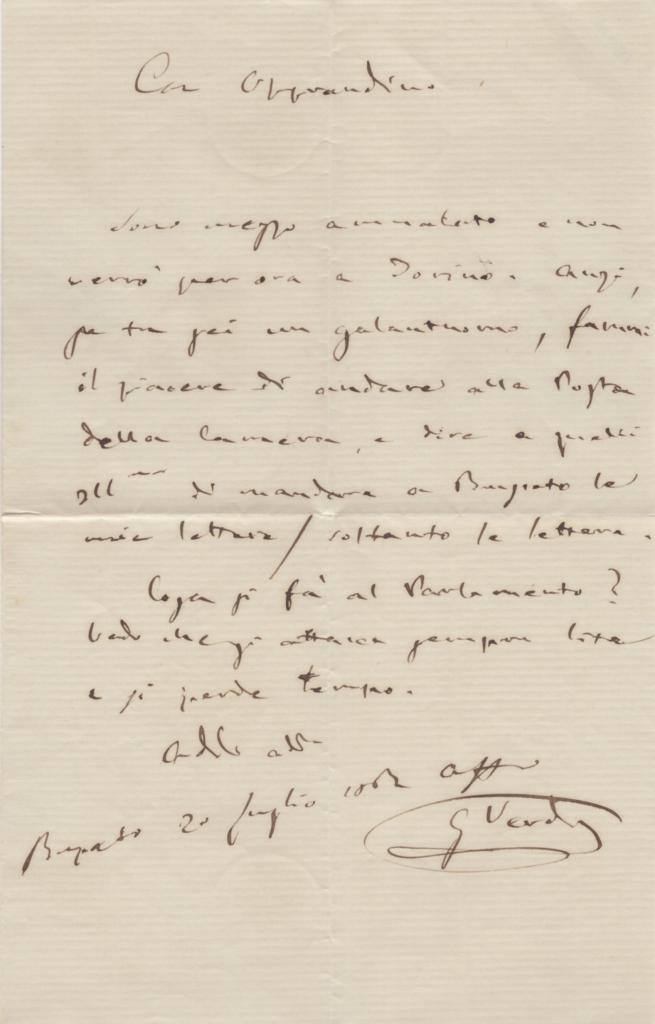 Car Opprandino
Sono mezzo ammalato e non
verrò per ora a Torino. Anzi,
se tu sei un galantuomo, fammi
il piacere di andare alla Posta
della Camera, e dire a quelli
di mandare a Busseto le
mie lettere / soltanto le lettere.
Cosa si fà al Parlamento?
Vedo che si attacca sempre lite
e si perde tempo.
Addio add
aff
Busseto 20 Luglio 1862
G Verdi